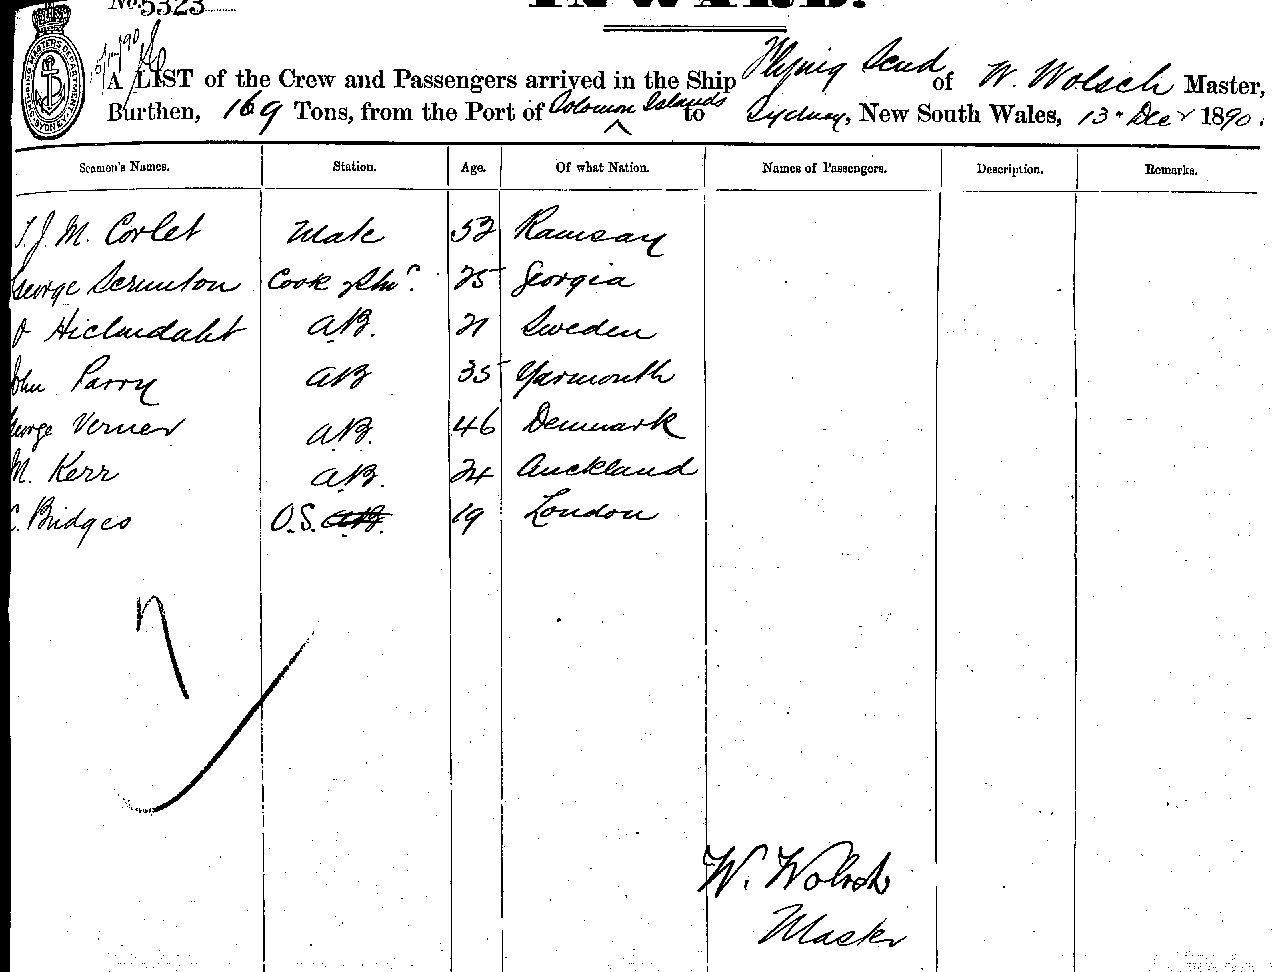 No. 5323
INWARD.
A LIST of the Crew and Passengers arrived in the Ship Flying Scud of W. Wolsch Master,
Burthen, 169 Tons, from the Port of Solomon Islands to Sydney, New South Wales, 13 Decr 1890.
Seamen's Names. Station. Age. Of what Nation. Names of Passengers. Description. Remarks.
T. J. M. Corlet Mate 52 Ramsay
George Scrunton Cook & Stwd. 25 Georgia
Sweden A.B. 21
John Parry AB 35 Yarmouth
George Verner A.B. 46 Denmark
M. Kerr A.B. 24 Auckland
C. Bridges O.S. A.B. 19 London
W. Wolsch
Master